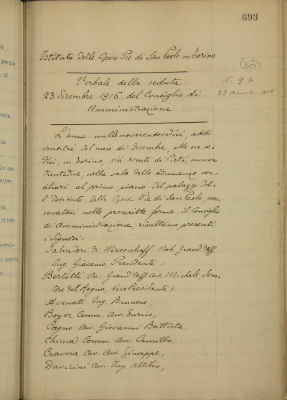 693
Istituto delle Opere Pie di San Paolo in Torino
Verbale della seduta
23 Dicembre 1916 del Consiglio di
Amministrazione
N. 92
L'anno millenovecentosedici, addì
ventitrè del mese di Dicembre, alle ore
in Torino, Via Monte di Pietà, numero
trentadue, nella sala delle adunanze
al primo piano del palazzo del
l'Istituto delle Opere Pie di San Paolo, con
vocatosi nelle prescritte forme il Consiglio
di Amministrazione, risultano presenti
i Signori:
Salvadori di Wiesenhoff Nob. Grand'Uff.
Ing. Giacomo Presidente;
Bertetti Av. Grand'Uff. Michele, Sena
tore del Regno, Vice Presidente;
Avenati Ing.
Boyer Comm. Av. Enrico,
Cagno Av. Giovanni Battista,
Chiesa Comm. Av. Camillo,
Cravosio Cav. Av. Giuseppe,
Davicini Av. Ing. Attilio,